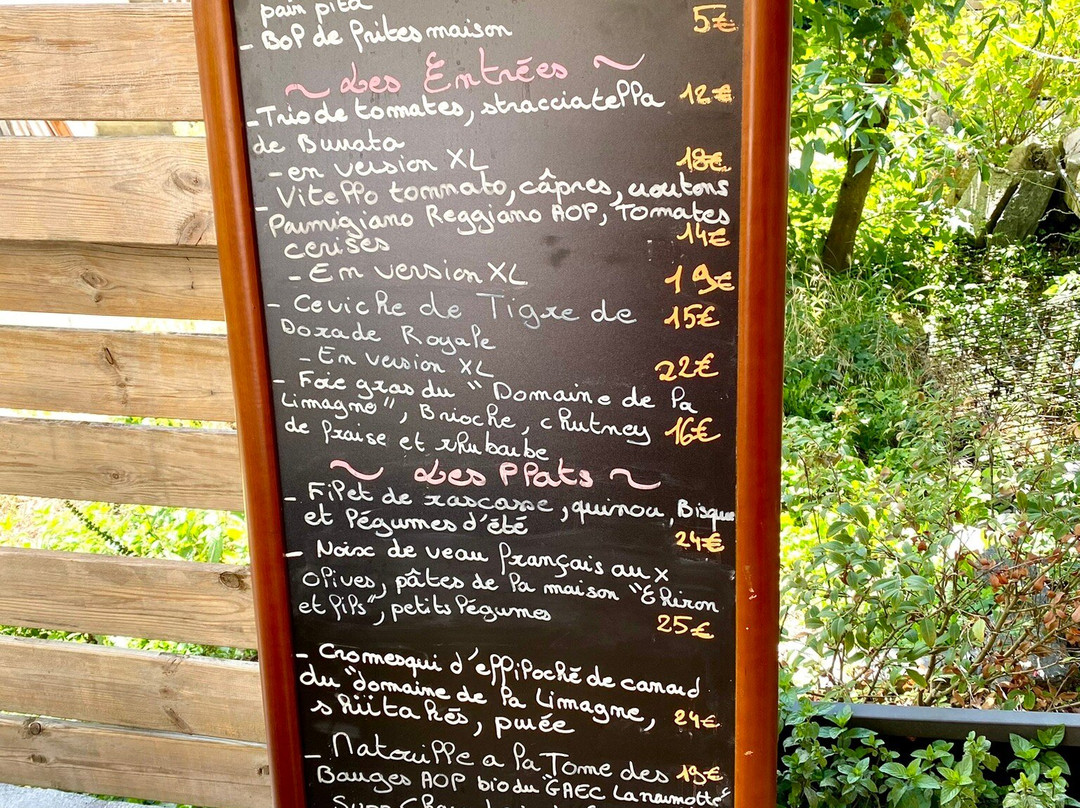 pain pita
- Bol de frites maison 5€
~ Les Entrées ~
- Trio de tomates, stracciatella 12€
de Burrata
- en version XL 18€
- Vitello tommato, câpres, croutons
Parmigiano Reggiano AOP, Tomates
cerises 14€
- En version XL 19€
- Ceviche de Tigre de 15€
Dorade Royale
- En version XL 22€
- Foie gras du "Domaine de la
Limagne", Brioche, chutney 16€
de fraise et rhubarbe
~ Les Plats ~
- Filet de rascasse, quinoa, Bisque
et légumes d'été 24€
- Noix de veau français aux
olives, pâtes de la maison "Ehiron
et fils", petits légumes 25€
- Cromesqui d'effiloché de canard
du "domaine de la Limagne, 24€
shiitakés, purée
- Natouille a la Tome des 19€
Bauges AOP bio du "GAEC Lanamotte"